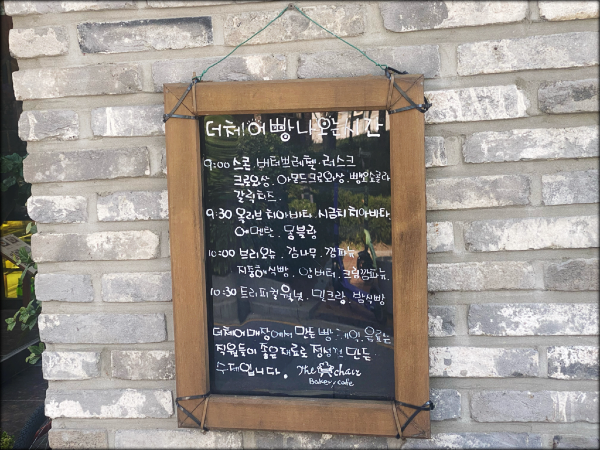 더체어빵나오는시간
9:00 스콘. 버터쁘레첼. 러스크
크로와상. 아몬드크로와상. 빵오쇼콜라
갈릭치즈.
9:30 올리브치아바타. 시금치치아바타
에멘탈. 몽블랑
10:00 브리오슈. 감나무. 깜파뉴
지통팥식빵. 앙버터. 크림깜파뉴.
10:30 트리피컬. 밀크랑. 밤식빵
더체어매장에서 만든빵. 케익. 음료는
직원들이 좋은재료로 정성껏 만든
수제입니다. The chair
Bakery, cafe